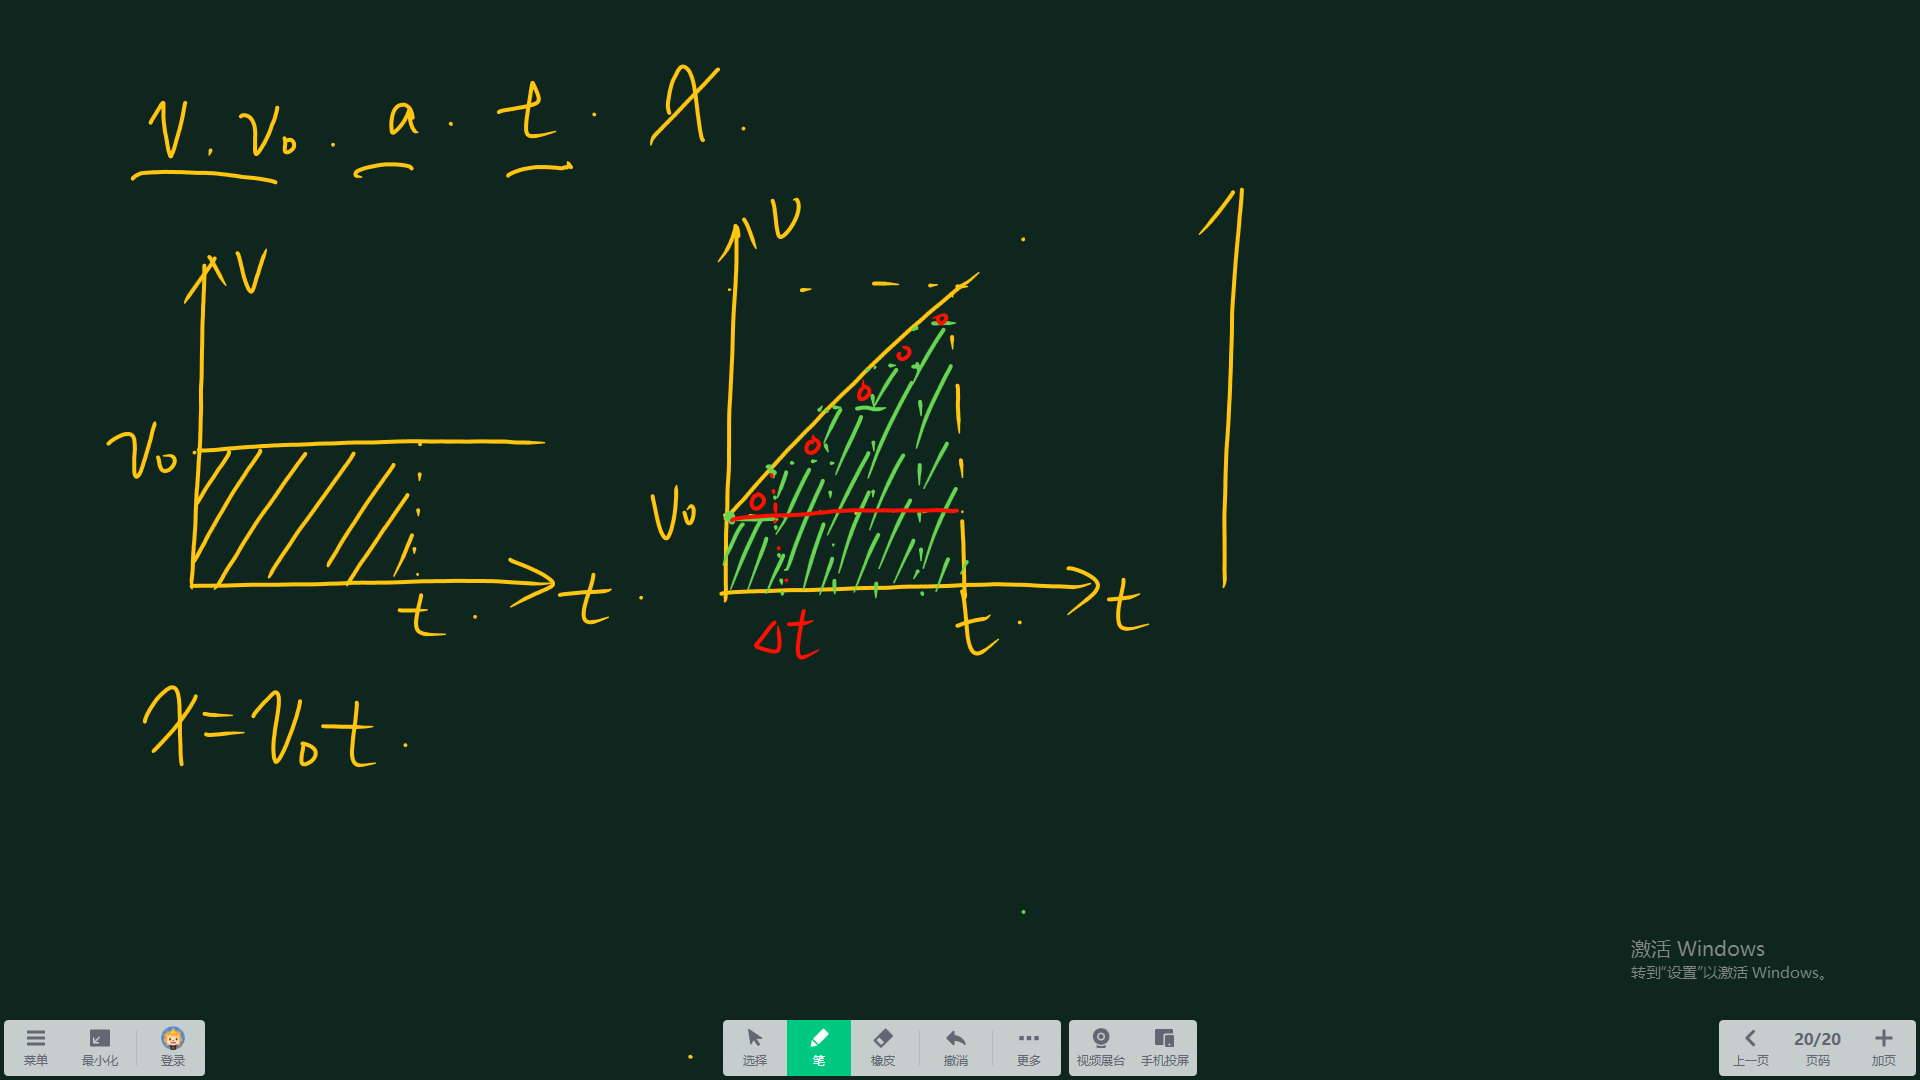 v. v₀. a. t. x.
v
v
v₀
v₀
t.
t.
Δt
t.
t
x=v₀t.
激活 Windows
转到“设置”以激活 Windows。
菜单 最小化 登录 选择 笔 橡皮 撤消 更多 视频展台 手机投屏 上一页 20/20 页码 加页